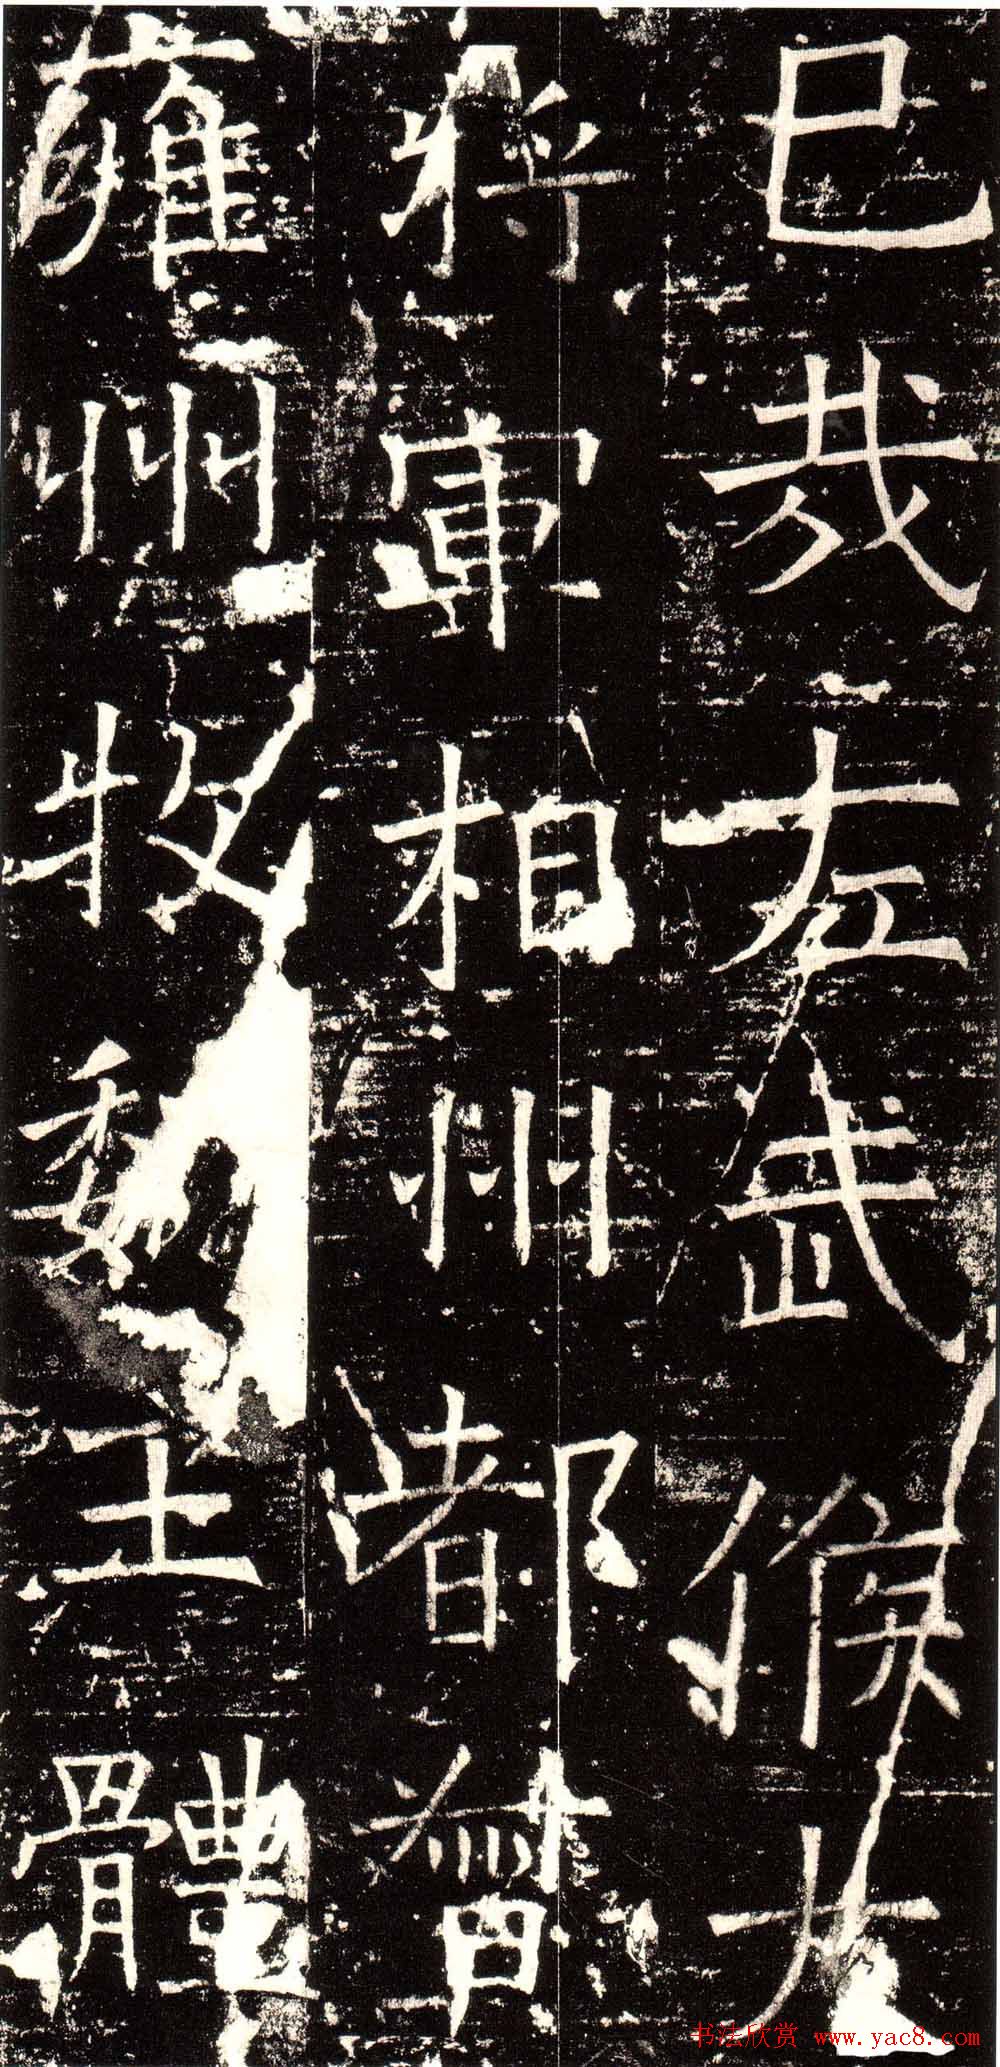 已哉左武候大
將軍相州都督
雍州牧魏王體
书法欣赏 www.yac8.com